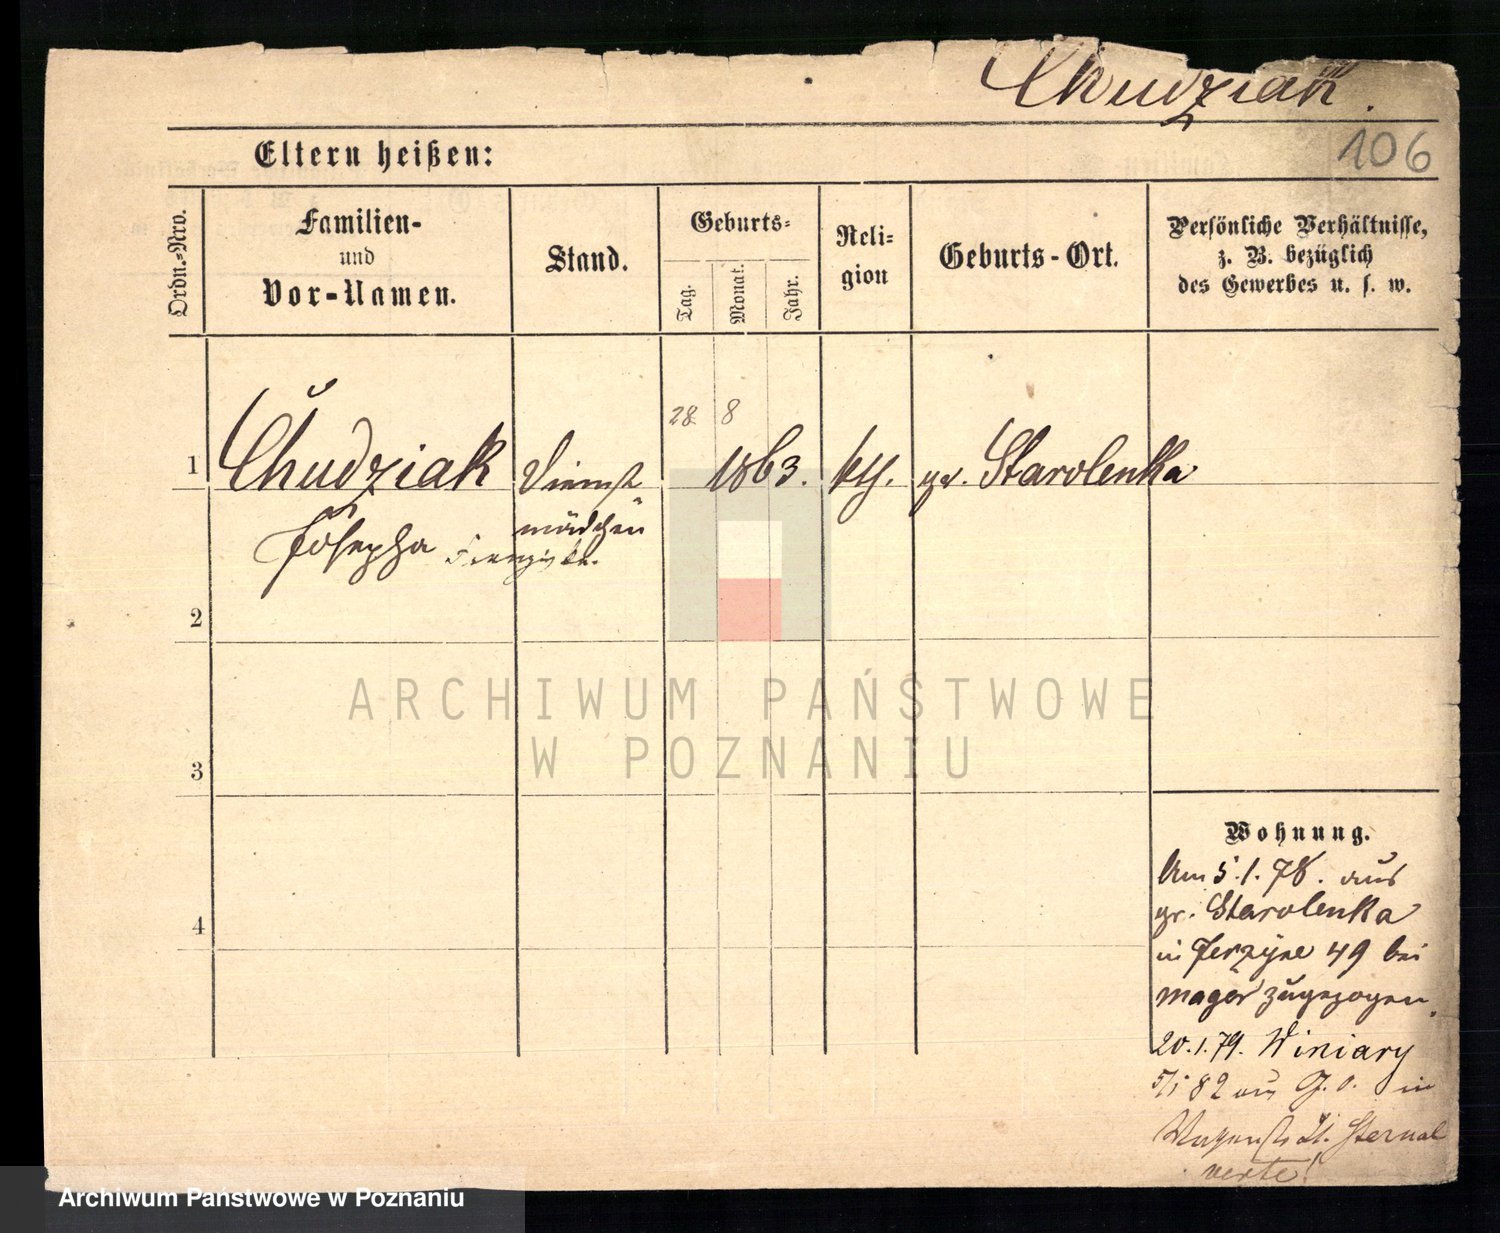 Chudziak.
106
Eltern heißen:
Ordn.-Nro.
Familien-
und
Vor-Namen.
Stand.
Geburts-
Tag.
Monat.
Jahr.
Reli-
gion
Geburts-Ort.
Persönliche Verhältnisse,
z. B. bezüglich
des Gewerbes u. s. w.
28. 8
1 Chudziak Dienst 1863. kth. gr. Starolenka
Josepha mädchen
2
3
4
Wohnung.
Am 5.1.78. aus
gr. Starolenka
in Jerzyce 49 bei
Mager zugezogen.
20.1.79. Winiary
5/1 82 aus G. O. in
21. Sternal
verte!
ARCHIWUM PAŃSTWOWE
W POZNANIU
Archiwum Państwowe w Poznaniu